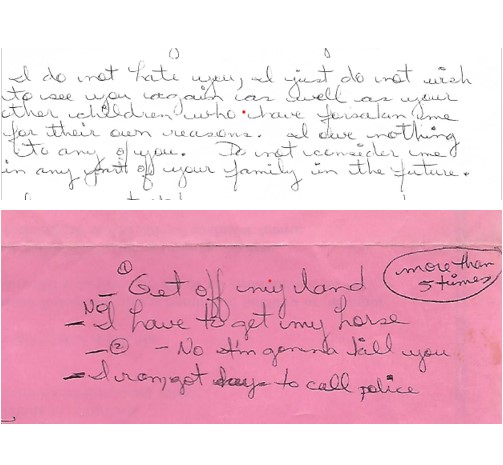 I do not hate you, I just do not wish
to see you again as well as your
other children who have forsaken me
for their own reasons. I owe nothing
to any of you. Do not consider me
in any part of your family in the future.
① more than
- Get off my land 5 times
No
- I have to get my horse
- ② - No I'm gonna kill you
- I ran, got to call police